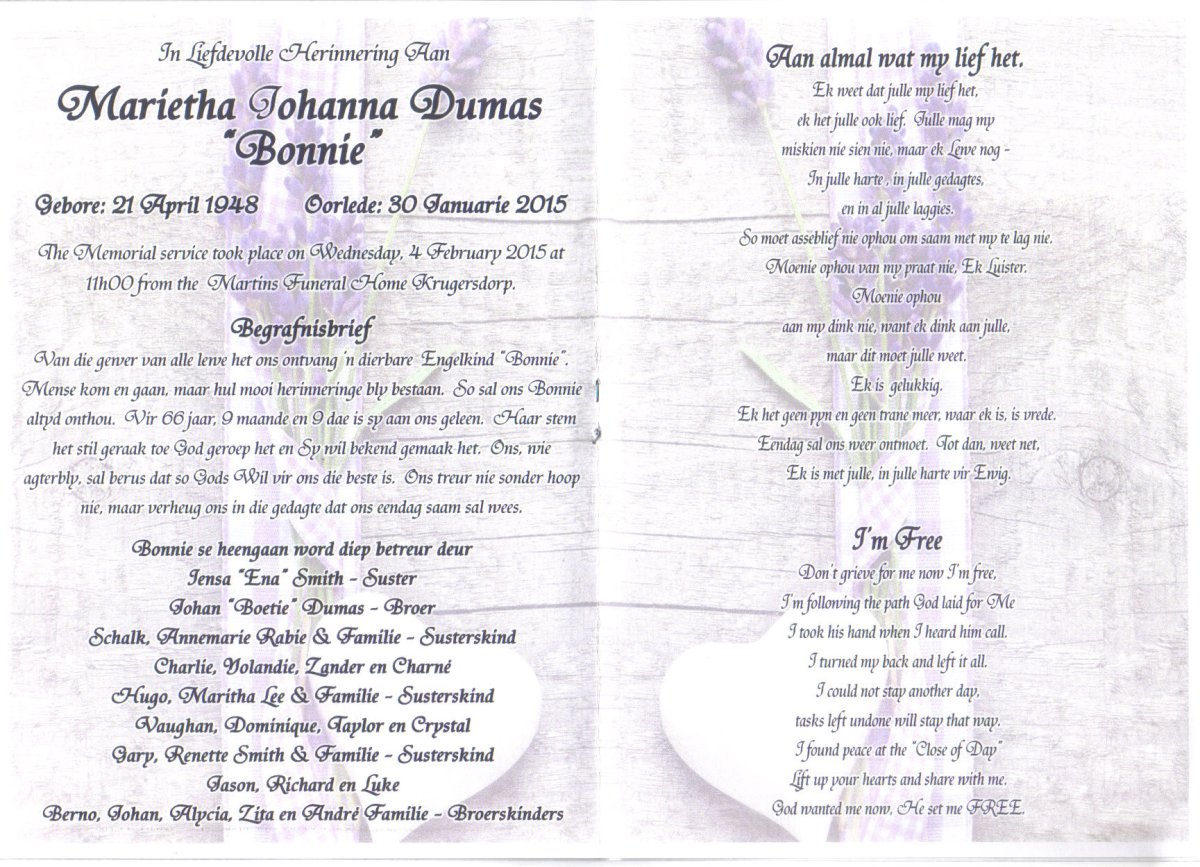 In Liefdevolle Herinnering Aan
Marietha Johanna Dumas
"Bonnie"
Gebore: 21 April 1948 Oorlede: 30 Januarie 2015
The Memorial service took place on Wednesday, 4 February 2015 at
11h00 from the Martins Funeral Home Krugersdorp.
Begrafnisbrief
Van die gewer van alle lewe het ons ontvang 'n dierbare Engelkind "Bonnie".
Mense kom en gaan, maar hul mooi herinneringe bly bestaan. So sal ons Bonnie
altyd onthou. Vir 66 jaar, 9 maande en 9 dae is sy aan ons geleen. Haar stem
het stil geraak toe God geroep het en Sy wil bekend gemaak het. Ons, wie
agterbly, sal berus dat so Gods Wil vir ons die beste is. Ons treur nie sonder hoop
nie, maar verheug ons in die gedagte dat ons eendag saam sal wees.
Bonnie se heengaan word diep betreur deur
Jensa "Ena" Smith - Suster
Johan "Boetie" Dumas - Broer
Schalk, Annemarie Rabie & Familie - Susterskind
Charlie, Yolandie, Zander en Charné
Hugo, Maritha Lee & Familie - Susterskind
Vaughan, Dominique, Taylor en Crystal
Gary, Renette Smith & Familie - Susterskind
Jason, Richard en Luke
Berno, Johan, Alycia, Zita en André Familie - Broerskinders
Aan almal wat my lief het.
Ek weet dat julle my lief het,
ek het julle ook lief. Julle mag my
miskien nie sien nie, maar ek Lewe nog -
In julle harte , in julle gedagtes,
en in al julle laggies.
So moet asseblief nie ophou om saam met my te lag nie.
Moenie ophou van my praat nie, Ek Luister.
Moenie ophou
aan my dink nie, want ek dink aan julle,
maar dit moet julle weet.
Ek is gelukkig.
Ek het geen pyn en geen trane meer, waar ek is, is vrede.
Eendag sal ons weer ontmoet. Tot dan, weet net,
Ek is met julle, in julle harte vir Ewig.
I'm Free
Don't grieve for me now I'm free,
I'm following the path God laid for Me
I took his hand when I heard him call.
I turned my back and left it all.
I could not stay another day,
tasks left undone will stay that way.
I found peace at the "Close of Day"
Lift up your hearts and share with me.
God wanted me now, He set me FREE.